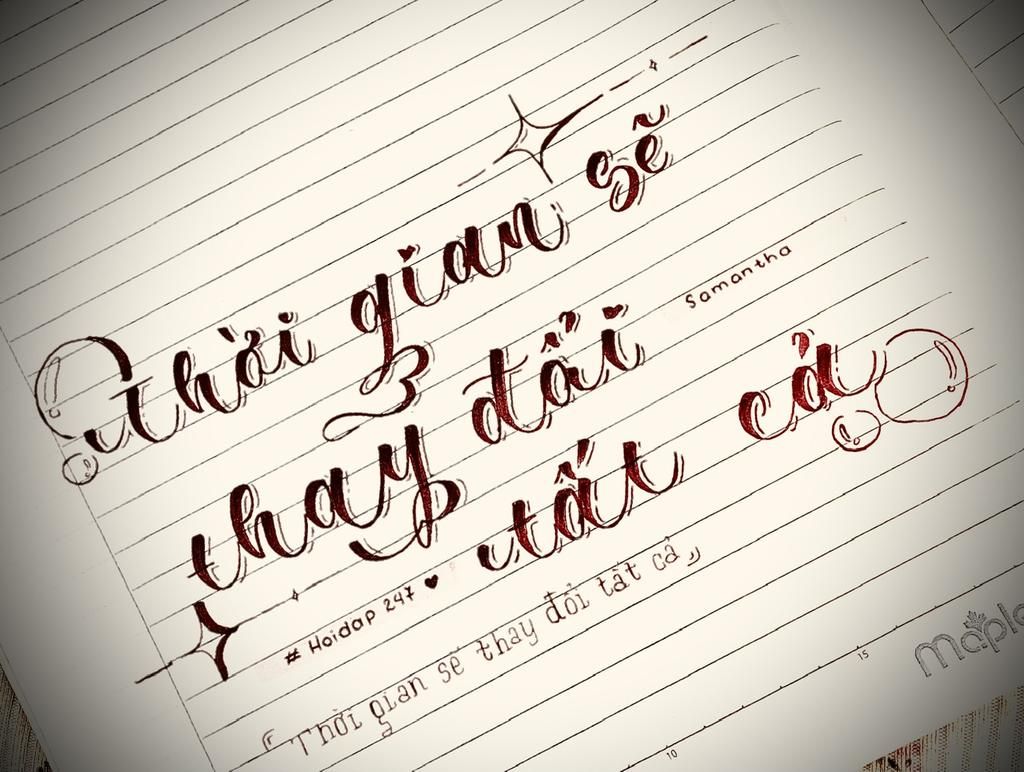 Thời gian sẽ
thay đổi
Samantha
tất cả
# Hoidap 247 ♥
『Thời gian sẽ thay đổi tất cả』
10
15
maple